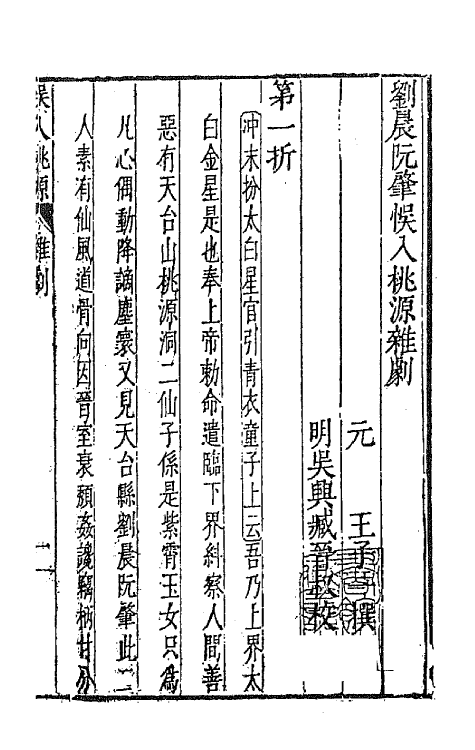 劉晨阮肇悞入桃源雜劇
元 王子一撰
明吳興臧晉叔校
第一折
冲末扮太白星官引青衣童子上云吾乃上界太
白金星是也奉上帝勅命遣臨下界糾察人間善
惡有天台山桃源洞二仙子係是紫霄玉女只爲
凡心偶動降謫塵寰又見天台縣劉晨阮肇此二
人素有仙風道骨向因晉室衰頹姦讒竊柄甘分
悞入桃源 雜劇